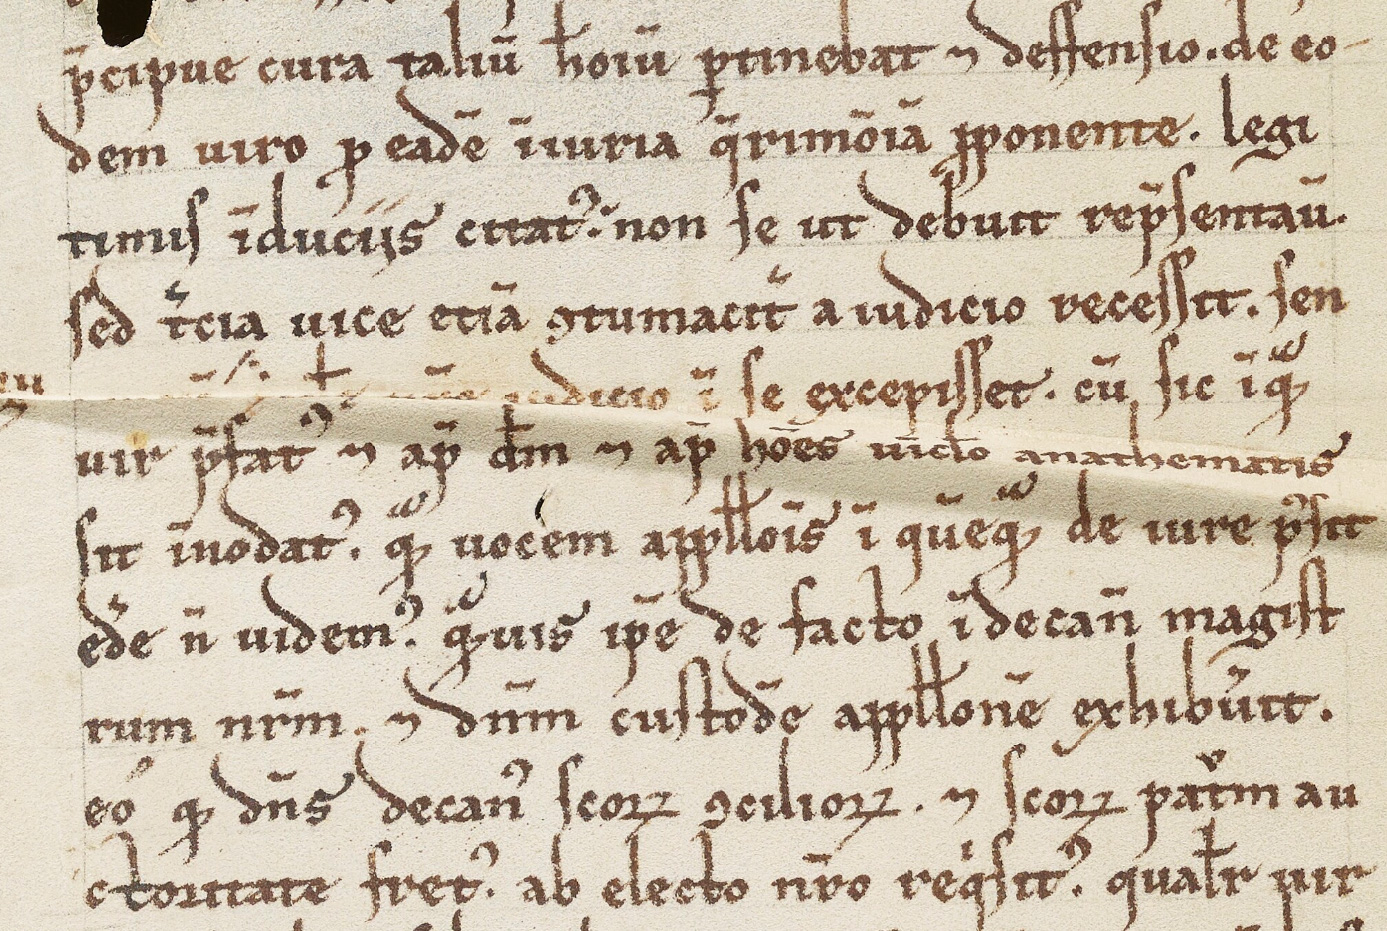 p̄cipue cura taliū hoīū ꝑtinebat ⁊ deffensio. de eo-
dem uiro ꝓ eadē īiuria q̄rimōīā ꝓponente. legi
timis īduciis citatꝰ. non se ut debuit rep̄sentau̅.
sed t̓cia uice etiā ꝯtumacit̓ a iudicio recessit. sen
iudicio ī se excepisset. cū sic iqͣ
uir p̄fatꝰ ⁊ ap̄ dm̄ ⁊ ap̄ hōēs uīclo anathematis
sit īnodatꝰ. qͣ uocem appll̄oīs ī quēqͣ de iure p̓sit
ed̓e n̄ uidemꝰ. qͣuis ip̄e de facto ī decan̄ magist
rum nr̄m. ⁊ dn̄m custodē appll̄onē exhibu̓it.
eó ꝙ dn̄s decanꝰ scoꝝ ꝯcilioꝝ. ⁊ scoꝝ pat̓m au
ctoritate fretꝰ. ab electo nr̄o req̇sitꝰ. qual̄r uir